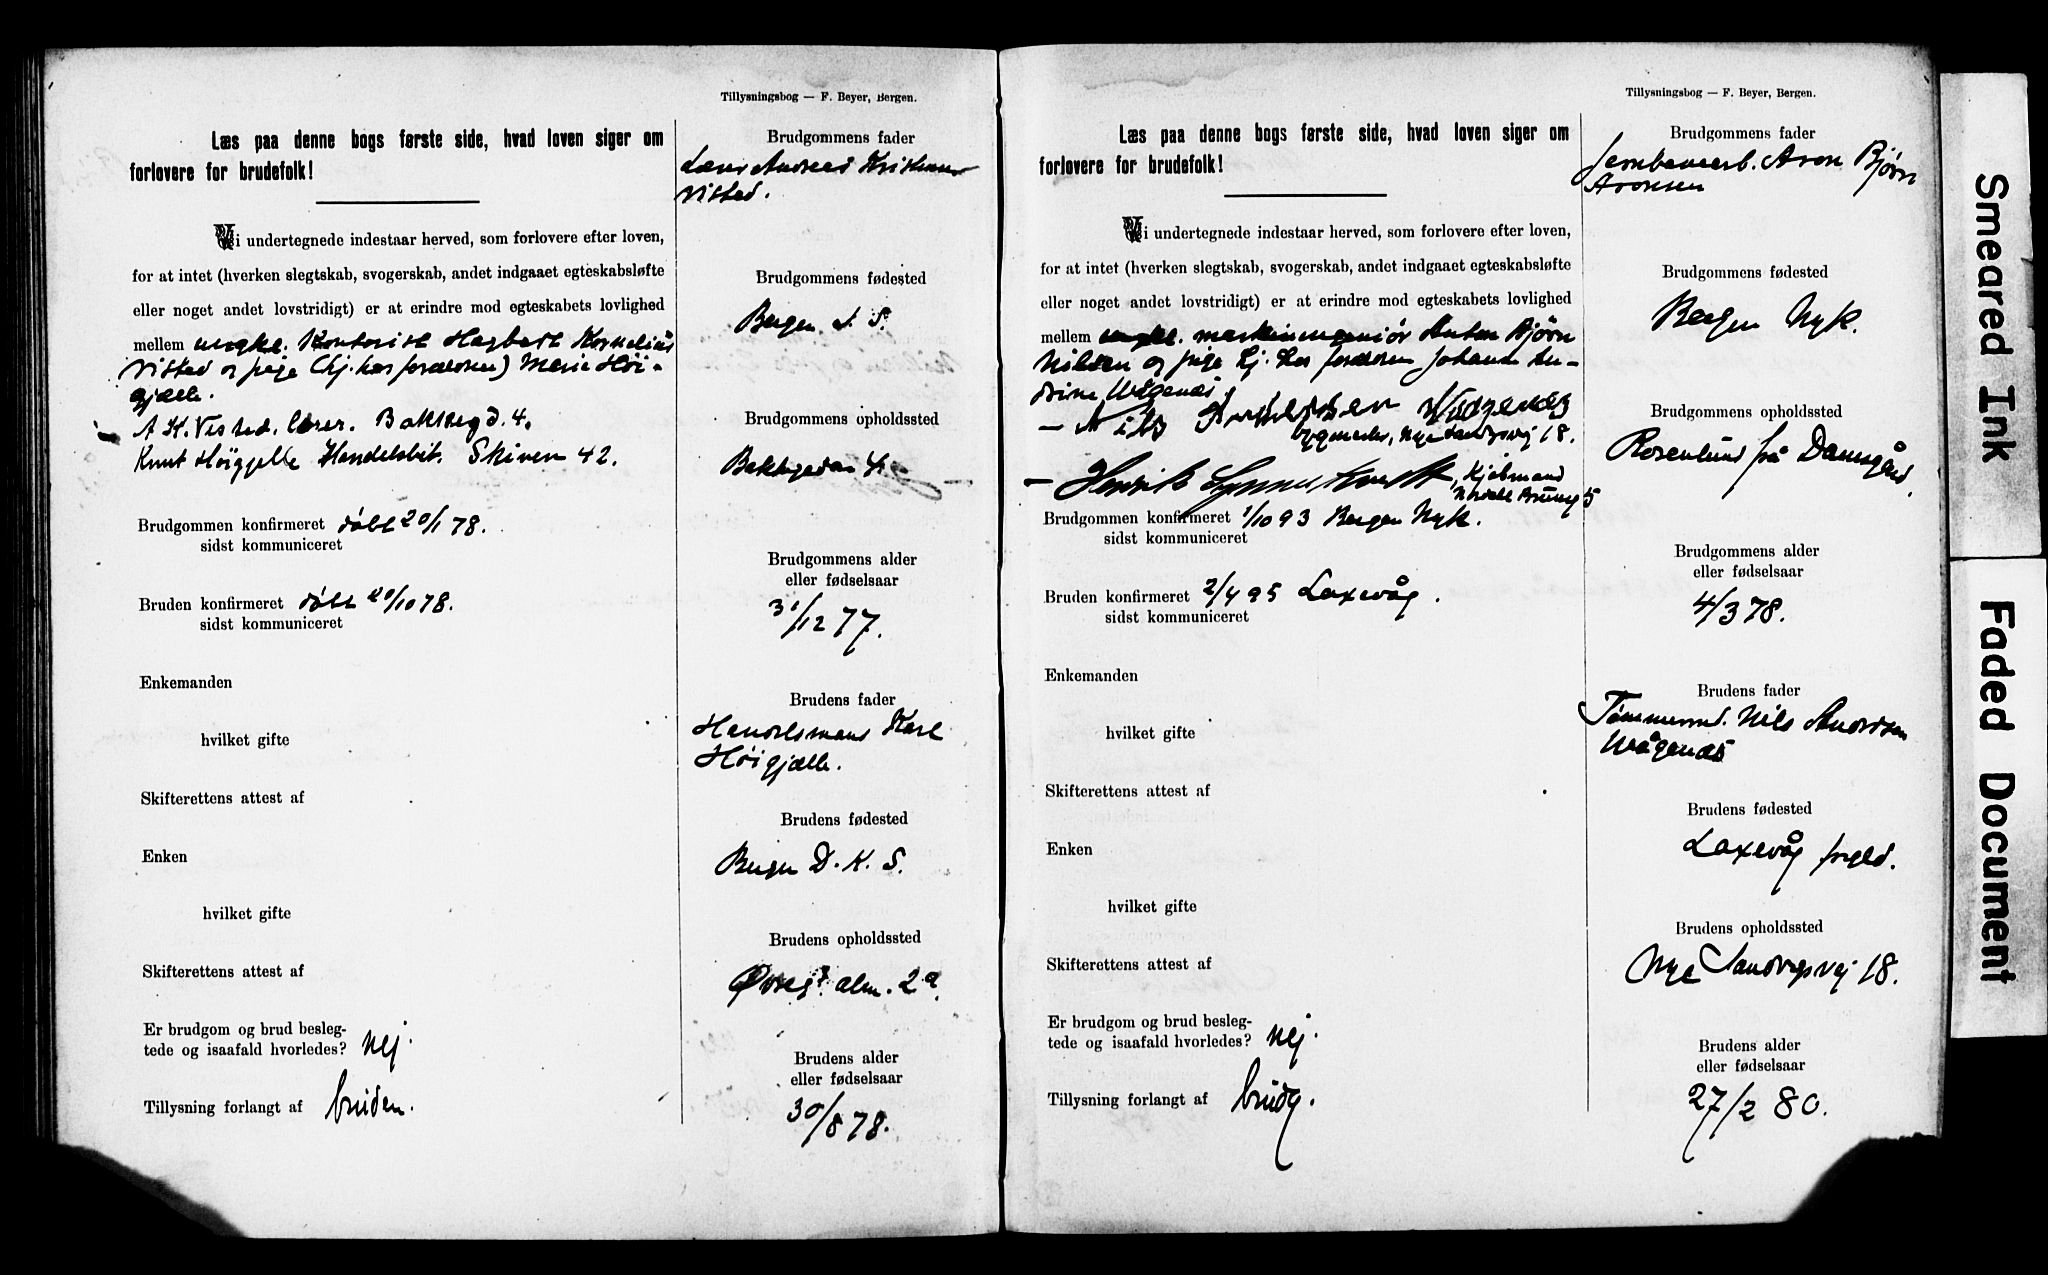 Tillysningsbog — F. Beyer, Bergen.
Læs paa denne bogs første side, hvad loven siger om
forlovere for brudefolk!
Vi undertegnede indestaar herved, som forlovere efter loven,
for at intet (hverken slegtskab, svogerskab, andet indgaaet egteskabsløfte
eller noget andet lovstridigt) er at erindre mod egteskabets lovlighed
mellem ungkl. Kontorist Hagbart Kornelius
Visted og pige (hj. hos forældrene) Marie Høi-
gjælle.
A K. Visted. lærer. Bakkegd. 4.
Knut Höiggelle Handelsbet. Skiven 42.
Brudgommen konfirmeret døbt 20/1 78.
sidst kommuniceret
Bruden konfirmeret døbt 20/10 78.
sidst kommuniceret
Enkemanden
hvilket gifte
Skifterettens attest af
Enken
hvilket gifte
Skifterettens attest af
Er brudgom og brud besleg-
tede og isaafald hvorledes? nej.
Tillysning forlangt af bruden.
Brudgommens fader
Lærer Andreas Kristian
Visted.
Brudgommens fødested
Bergen J. S.
Brudgommens opholdssted
Bakkegaden 4
Brudgommens alder
eller fødselsaar
31/12 77.
Brudens fader
Handelsmand Karl
Höigjælle.
Brudens fødested
Bergen D. K. S.
Brudens opholdssted
Øvregt. alm. 2a
Brudens alder
eller fødselsaar
30/8 78.
Tillysningsbog — F. Beyer, Bergen.
Læs paa denne bogs første side, hvad loven siger om
forlovere for brudefolk!
Vi undertegnede indestaar herved, som forlovere efter loven,
for at intet (hverken slegtskab, svogerskab, andet indgaaet egteskabsløfte
eller noget andet lovstridigt) er at erindre mod egteskabets lovlighed
mellem ungkl. maskiningeniør Anton Bjørn
Nilsen og pige hj. hos forældrene Johanne An-
drine Wågenæs
Nils Wågenæs
bygmester, Nye Sandvigsvej 18.
Henrik Kjøbmand
Brudgommen konfirmeret 1/10 93 Bergen Nyk.
sidst kommuniceret
Bruden konfirmeret 2/4 95 Laxevåg.
sidst kommuniceret
Enkemanden
hvilket gifte
Skifterettens attest af
Enken
hvilket gifte
Skifterettens attest af
Er brudgom og brud besleg-
tede og isaafald hvorledes? nej.
Tillysning forlangt af brudg.
Brudgommens fader
Jernbanearb. Aron Bjørn
Aronsen
Brudgommens fødested
Bergen Nyk.
Brudgommens opholdssted
Rosenlund frå Damsgård
Brudgommens alder
eller fødselsaar
4/3 78.
Brudens fader
Tømmermd. Nils Andersen
Wågenæs
Brudens fødested
Laxevåg prgld.
Brudens opholdssted
Nye Sandvigsvej 18.
Brudens alder
eller fødselsaar
27/2 80.
Smeared Ink
Faded Document